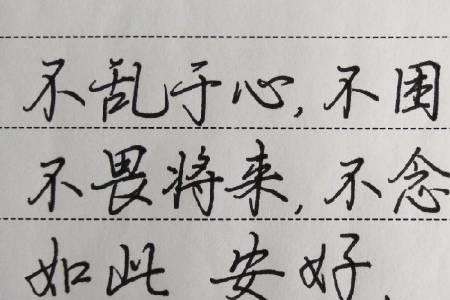 不乱于心,不困
不畏将来,不念
如此 安好.